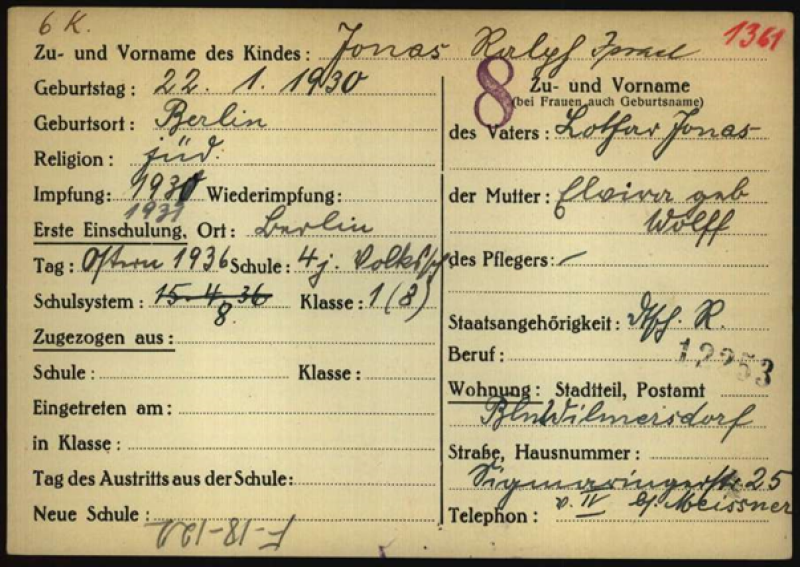 6 K.
1361
Zu- und Vorname des Kindes: Jonas Ralph Israel
Geburtstag: 22. 1. 1930
Geburtsort: Berlin
Religion: jüd.
Impfung: 1930 Wiederimpfung:
1931
Erste Einschulung, Ort: Berlin
Tag: Ostern 1936 Schule: 4 j. Volkssch.
Schulsystem: 15.4.36 Klasse: 1 (8)
8
Zugezogen aus:
Schule: Klasse:
Eingetreten am:
in Klasse:
Tag des Austritts aus der Schule:
Neue Schule:
8
Zu- und Vorname
(bei Frauen auch Geburtsname)
des Vaters: Lothar Jonas
der Mutter: Elvira geb
Wolff
des Pflegers: –
Staatsangehörigkeit: Dtsch. R.
Beruf:
12253
Wohnung: Stadtteil, Postamt
Bln Wilmersdorf
Straße, Hausnummer:
Sigmaringerstr 25
v. IV b/ Meissner
Telephon: